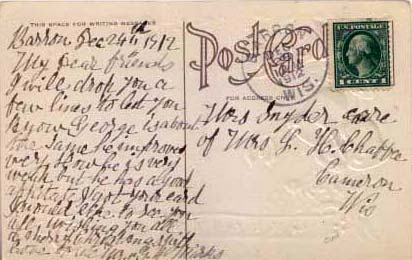 THIS SPACE FOR WRITING MESSAGES
Post Card
FOR ADDRESS ONLY
Barron Dec 24th 1912
My Dear friends
I will drop you a
few lines to let you
know George is about
the same he improves
very slow he is very
weak but he has a good
appitite I got your card
would like to see you
all wishing you all
1912
WIS.
1 CENT 1
Mrs Snyder care
of Mrs L. H. Chaffee
Cameron
Wis